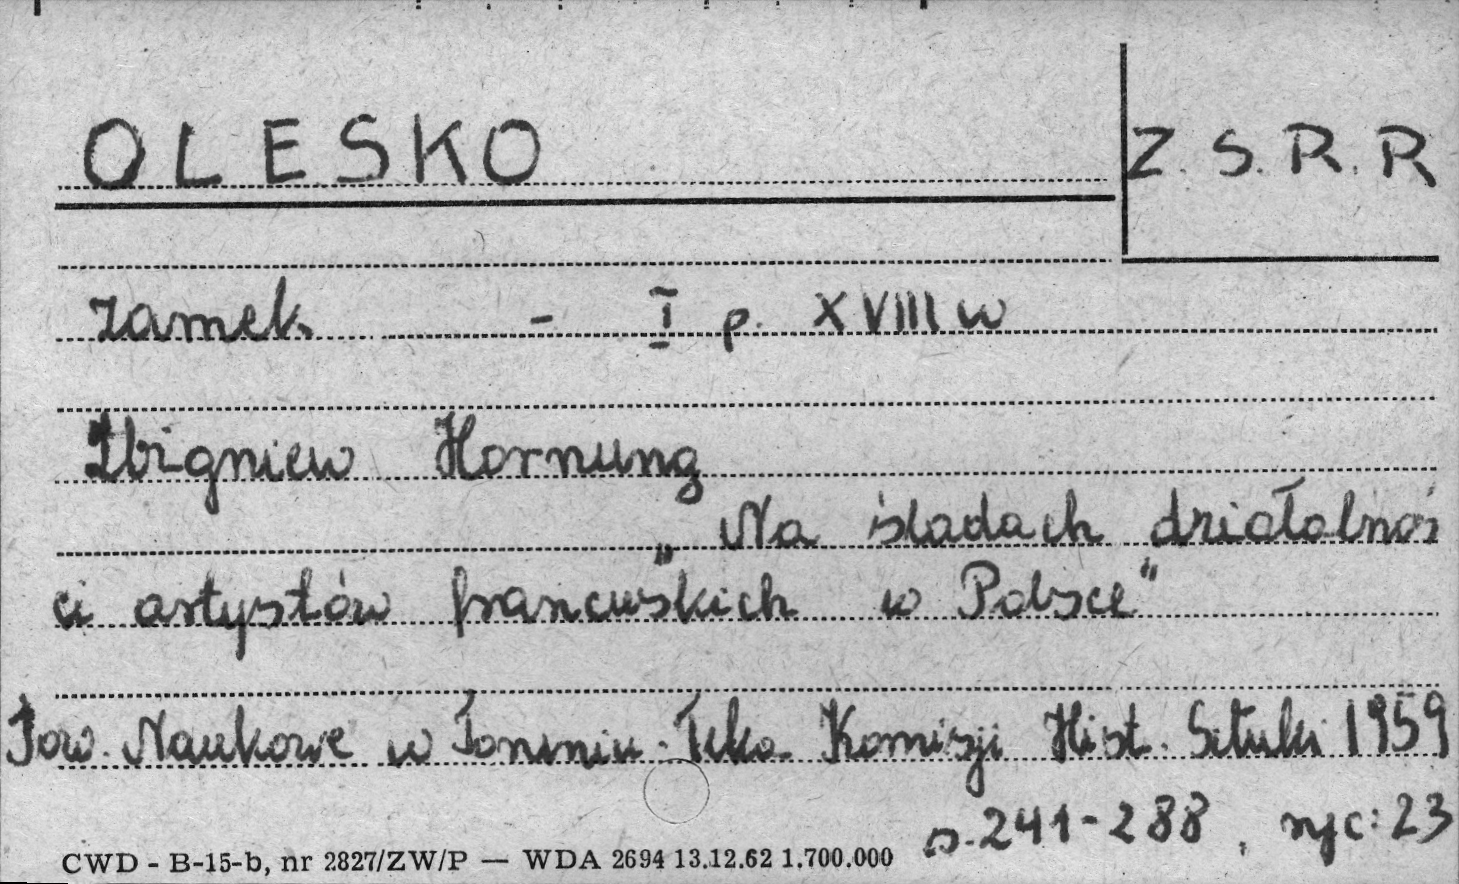 OLESKO
Z.S.R.R
zamek - I p. XVIII w
Zbigniew Hornung
„Na śladach działalnoś
ci artystów francuskich w Polsce"
Tow. Naukowe w Toruniu. Teka Komisji Hist. Sztuki 1959
s. 241-288, ryc: 23
CWD - B-15-b, nr 2827/ZW/P — WDA 2694 13.12.62 1.700.000